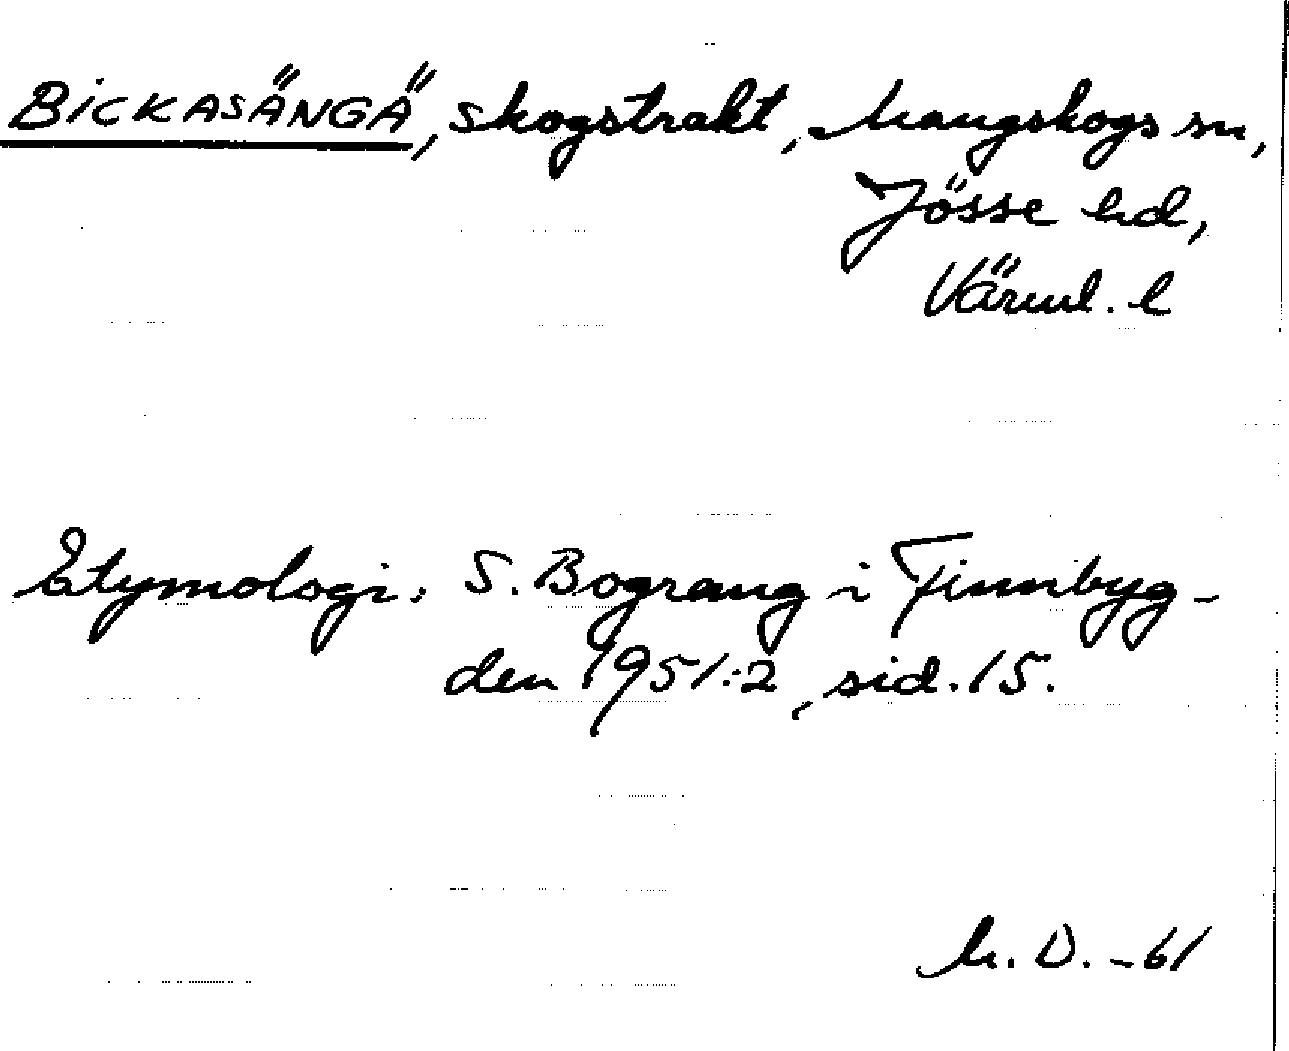 BICKASÄNGÄ, skogstrakt, Mangskogs sn,
Jösse hd,
Värml. l
Etymologi: S. Bograng i Finnbyg-
den 1951:2, sid. 15.
M. D. -61